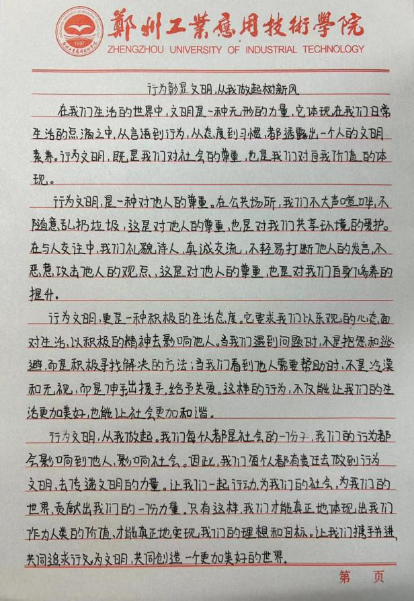 郑州工业应用技术学院
ZHENGZHOU UNIVERSITY OF INDUSTRIAL TECHNOLOGY
行为彰显文明,从我做起树新风
在我们生活的世界中,文明是一种无形的力量,它体现在我们日常
生活的点滴之中,从言语到行为,从态度到习惯,都透露出一个人的文明
素养。行为文明,既是我们对社会的尊重,也是我们对自我价值的体
现。
行为文明,是一种对他人的尊重。在公共场所,我们不大声喧哗,不
随意乱扔垃圾,这是对他人的尊重,也是对我们共享环境的爱护。
在与人交往中,我们礼貌待人,真诚交流,不轻易打断他人的发言,不
恶意攻击他人的观点,这是对他人的尊重,也是对我们自身修养的
提升。
行为文明,更是一种积极的生活态度。它要求我们以乐观的心态面
对生活,以积极的精神去影响他人。当我们遇到问题时,不是抱怨和逃
避,而是积极寻找解决的方法;当我们看到他人需要帮助时,不是冷漠
和无视,而是伸出援手,给予关爱。这样的行为,不仅能让我们的生
活更加美好,也能让社会更加和谐。
行为文明,从我做起。我们每个人都是社会的一份子,我们的行为都
会影响到他人,影响社会。因此,我们每个人都有责任去做到行为
文明,去传递文明的力量。让我们一起行动,为我们的社会,为我们的
世界,贡献出我们的一份力量。只有这样,我们才能真正地体现出我们
作为人类的价值,才能真正地实现我们的理想和目标。让我们携手并进,
共同追求行为文明,共同创造一个更加美好的世界。
第 页